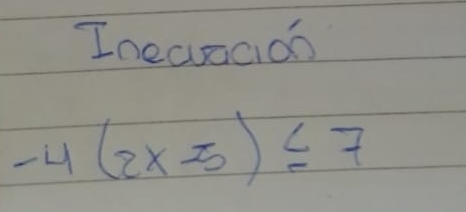 Inecuación
-4(2x-5) ≤ 7